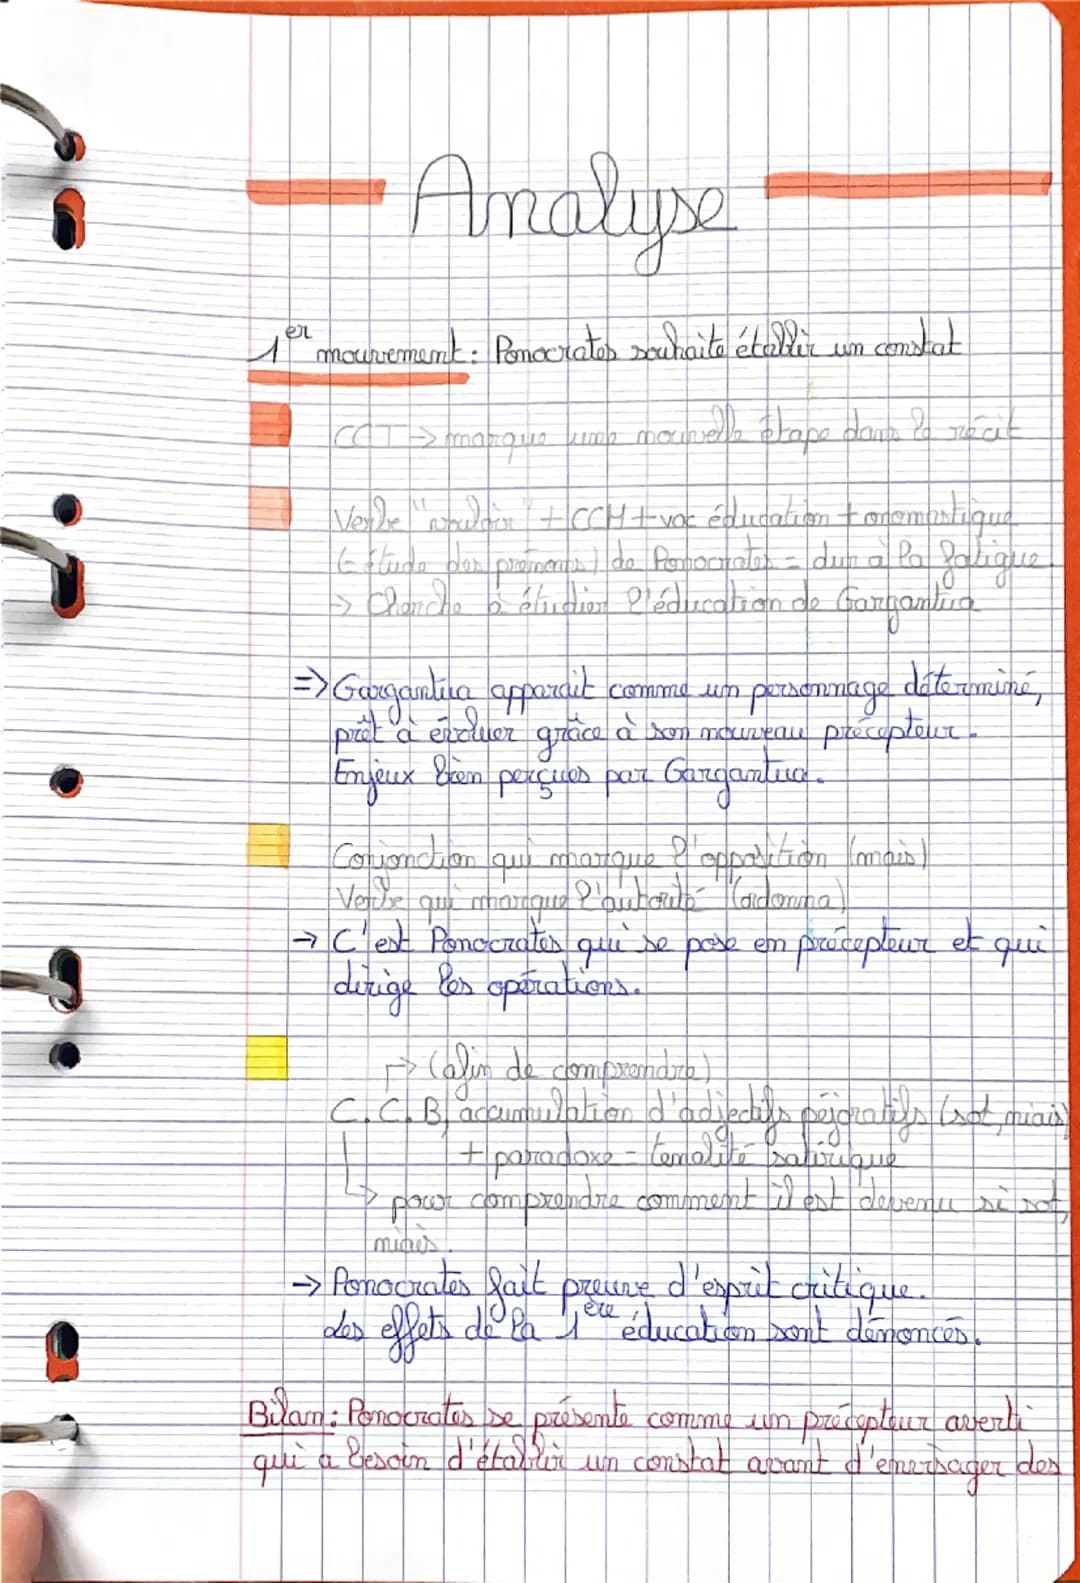 Analyse
1er mouvement : Ponocrates souhaite établir un constat
CCT → marque une nouvelle étape dans le récit
Verbe "vouloir" + CCM + voc éducation + onomastique
(étude des prénoms) de Ponocrates = dur à la fatigue
→ Cherche à étudier l'éducation de Gargantua
=> Gargantua apparait comme un personnage déterminé,
prêt à évoluer grâce à son nouveau précepteur.
Enjeux bien perçues par Gargantua.
Conjonction qui marque l'opposition (mais)
Verbe qui marque l'autorité (ordonna)
→ C'est Ponocrates qui se pose en précepteur et qui
dirige les opérations.
→ (afin de comprendre)
C.C.B, accumulation d'adjectifs péjoratifs (sot, niais)
+ paradoxe = tonalité satirique
→ pour comprendre comment il est devenu si sot,
niais.
→ Ponocrates fait preuve d'esprit critique.
Les effets de la 1ère éducation sont dénoncés.
Bilan : Ponocrates se présente comme un précepteur averti
qui a besoin d'établir un constat avant d'envisager des